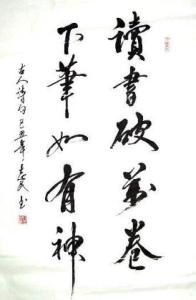 讀書破萬卷
下筆如有神
古人詩句己丑年书